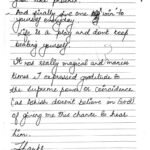 And finally give one "gain" to
yourself everyday.
Life is a play and dont keep
beating yourself.
It was really magical and
times I expressed gratitude to
the supreme power or coincidence
(as Ashish doesn't believe in God)
of giving me this chance to hear
him.
Thanks